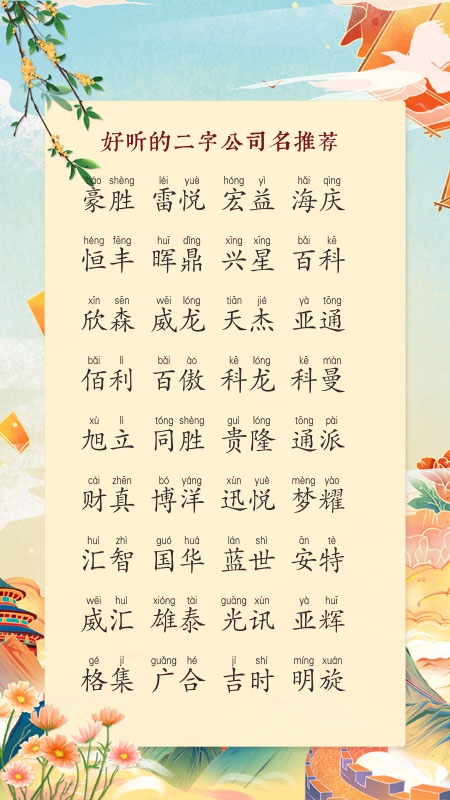 好听的二字公司名推荐
háo shèng léi yuè hóng yì hǎi qìng
豪胜 雷悦 宏益 海庆
héng fēng huī dǐng xīng xīng bǎi kē
恒丰 晖鼎 兴星 百科
xīn sēn wēi lóng tiān jié yà tōng
欣森 威龙 天杰 亚通
bǎi lì bǎi ào kē lóng kē màn
佰利 百傲 科龙 科曼
xù lì tóng shèng guì lóng tōng pài
旭立 同胜 贵隆 通派
cái zhēn bó yáng xùn yuè mèng yào
财真 博洋 迅悦 梦耀
huì zhì guó huá lán shì ān tè
汇智 国华 蓝世 安特
wēi huì xióng tài guāng xùn yà huī
威汇 雄泰 光讯 亚辉
gé jí guǎng hé jí shí míng xuán
格集 广合 吉时 明旋